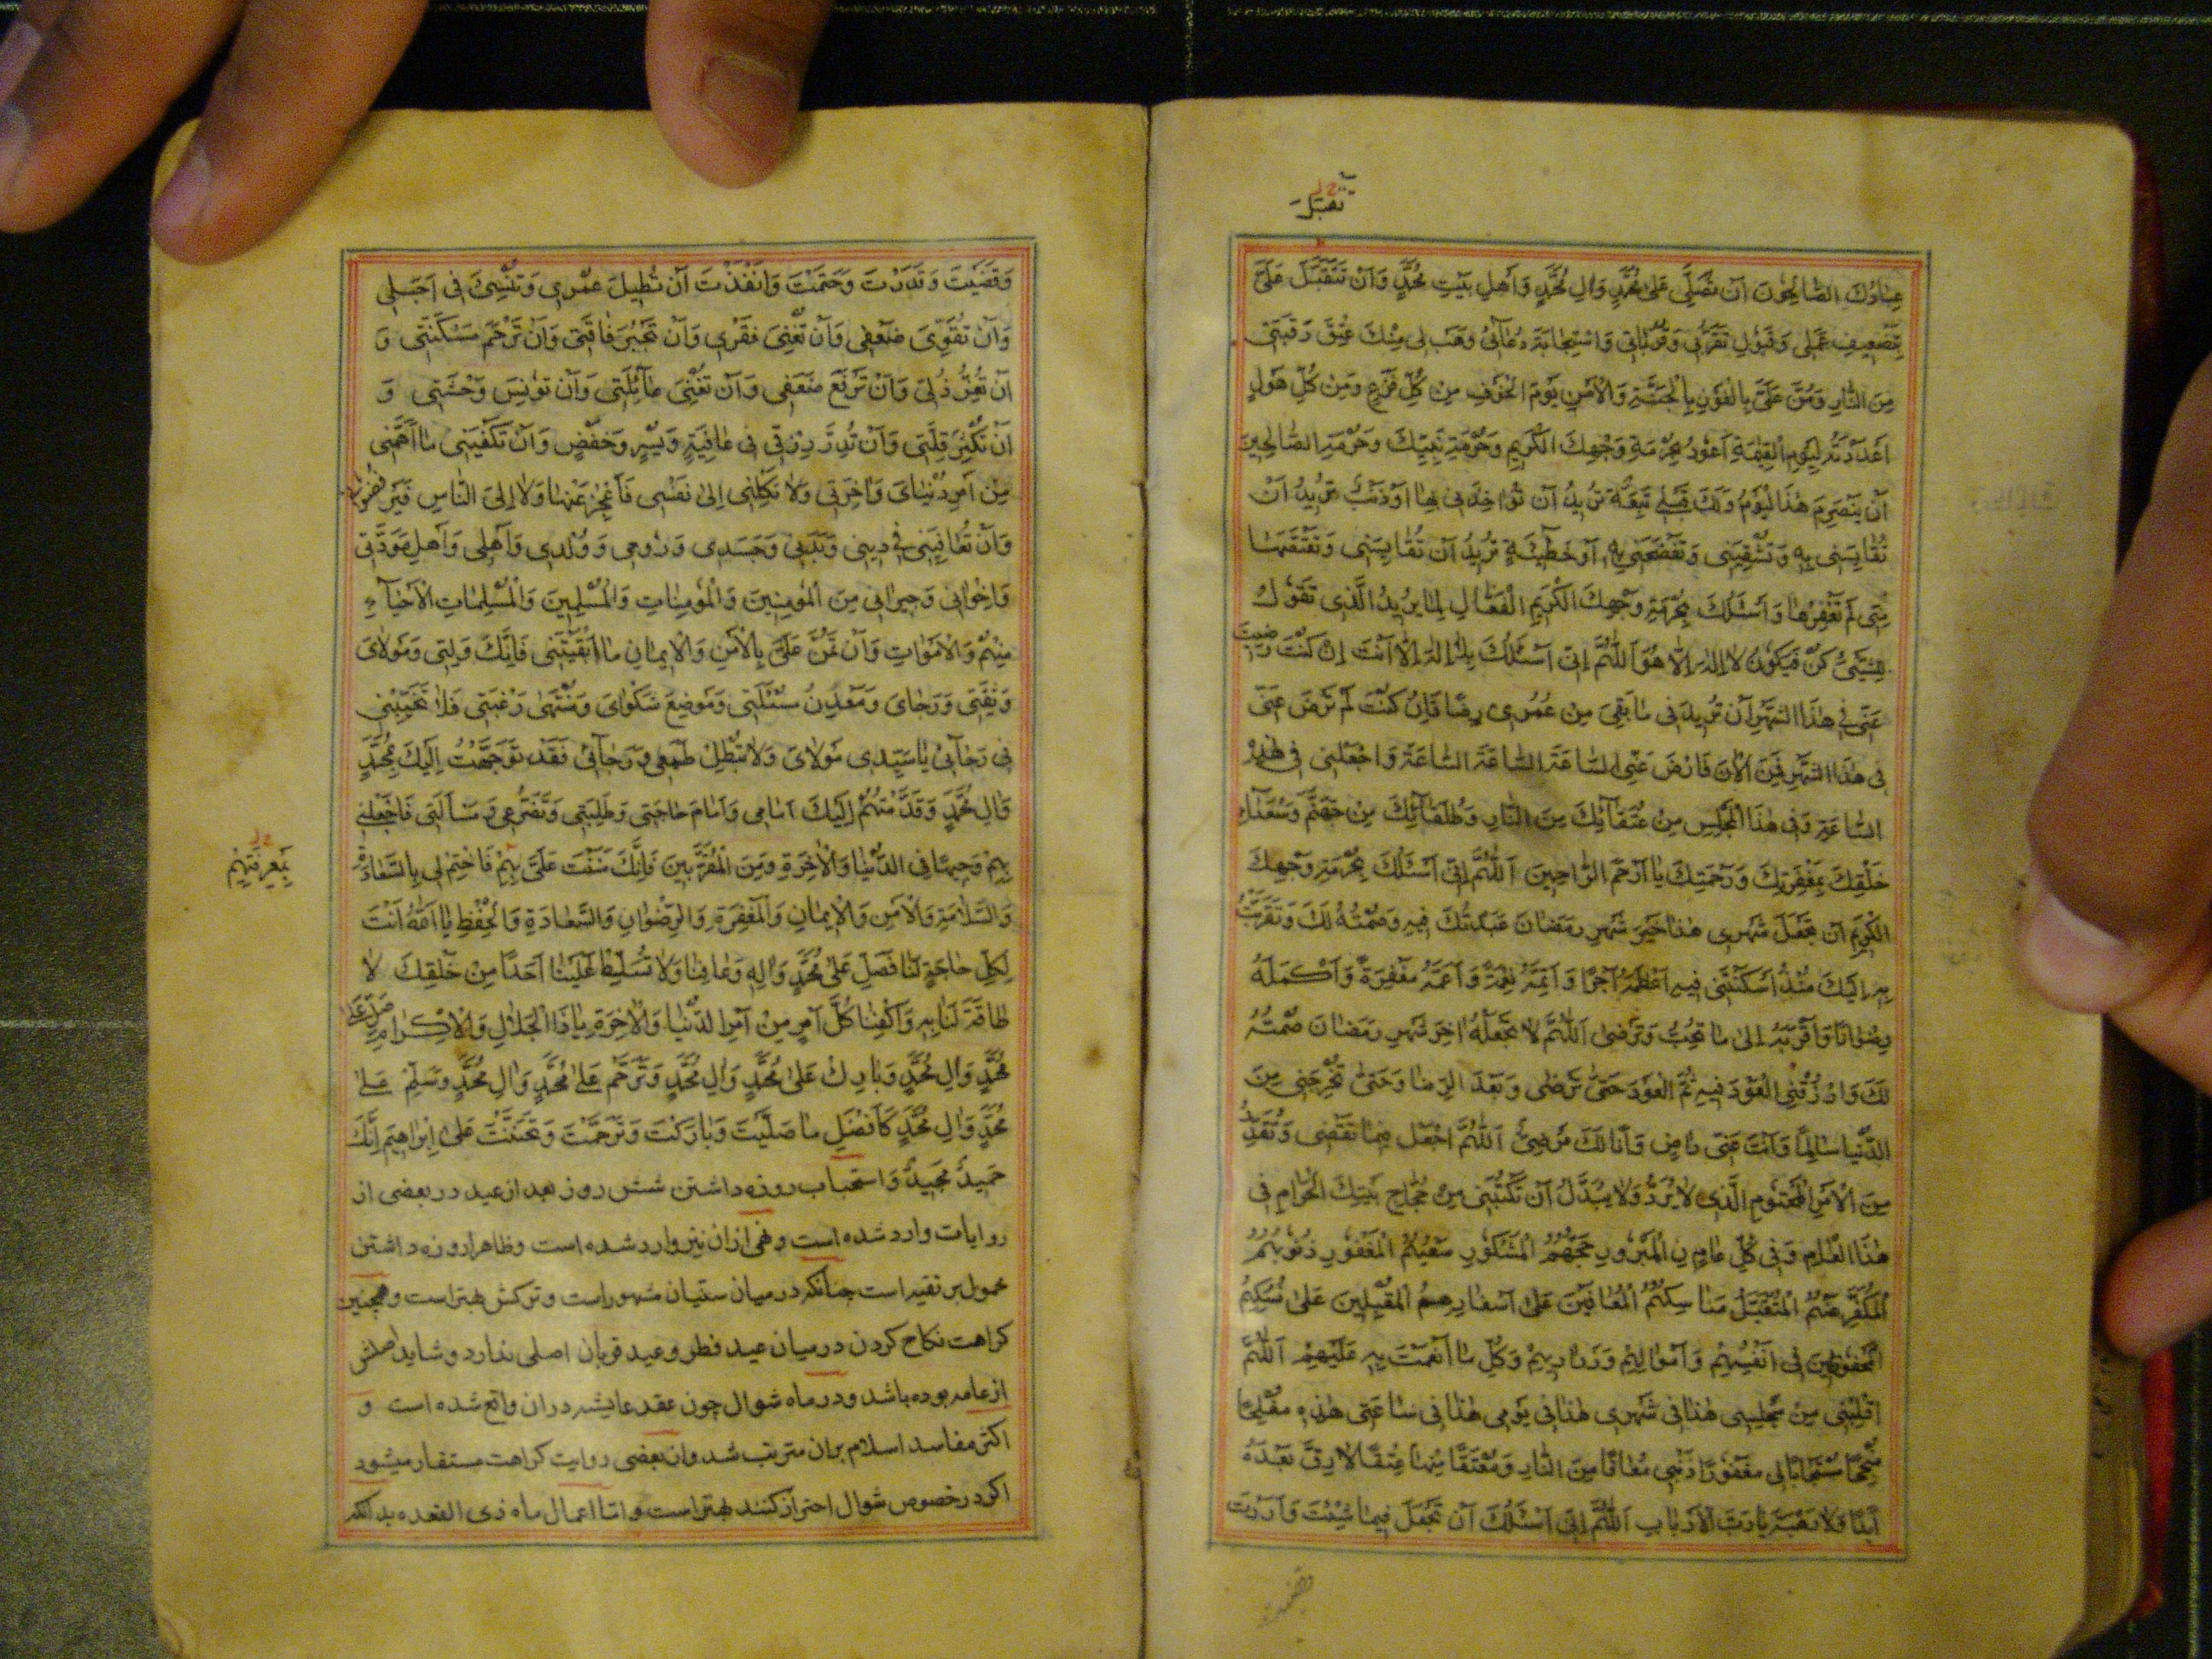 تقبل
عِبادُكَ الصّالِحُونَ اَنْ تُصَلِّیَ عَلیٰ مُحَمَّدٍ وَالِ مُحَمَّدٍ وَاَهْلِ بَیْتِ مُحَمَّدٍ وَاَنْ تَتَقَبَّلَ عَلَیَّ
بِتَضْعیفِ عَمَلی وَقَبُولِ تَقَرُّبی وَقُرُباتی وَاسْتِجابَةِ دُعآئی وَهَبْ لی مِنْكَ عِتْقَ رَقَبَتی
مِنَ النّارِ وَمُنَّ عَلَیَّ بِالْفَوْزِ بِالْجَنَّةِ وَالْاَمْنِ یَوْمَ الْخَوْفِ مِنْ كُلِّ فَزَعٍ وَمِنْ كُلِّ هَوْلٍ
اَعْدَدْتَهُ لِیَوْمِ الْقِیٰمَةِ اَعُوذُ بِحُرْمَةِ وَجْهِكَ الْكَریمِ وَحُرْمَةِ نَبِیِّكَ وَحُرْمَةِ الصّالِحینَ
اَنْ یَنْصَرِمَ هٰذَا الْیَوْمُ وَلَكَ قِبَلی تَبِعَةٌ تُریدُ اَنْ تُؤاخِذَنی بِها اَوْ ذَنْبٌ تُریدُ اَنْ
تُقایِسَنی بِهِ وَتُشْقِیَنی وَتَفْضَحَنی بِهِ اَوْ خَطیئَةٍ تُریدُ اَنْ تُقایِسَنی وَتَقْتَصَّها
مِنّی لَمْ تَغْفِرْها وَاَسْئَلُكَ بِحُرْمَةِ وَجْهِكَ الْكَریمِ الْفَعّالِ لِما یُریدُ الَّذی تَقُولُ
لِلشَّیْءِ كُنْ فَیَكُونُ لا اِلٰهَ اِلّا هُوَ اَللّٰهُمَّ اِنّی اَسْئَلُكَ بِلا اِلٰهَ اِلّا اَنْتَ اِنْ كُنْتَ رَضیتَ
عَنّی فی هٰذَا الشَّهْرِ اَنْ تُریدَنی ما بَقِیَ مِنْ عُمُری رِضًا فَاِنْ كُنْتَ لَمْ تَرْضَ عَنّی
فی هٰذَا الشَّهْرِ فَمِنَ الْانَ فَارْضَ عَنّی السّاعَةَ السّاعَةَ السّاعَةَ وَاجْعَلْنی فی هٰذِهِ
السّاعَةِ وَفی هٰذَا الْمَجْلِسِ مِنْ عُتَقآئِكَ مِنَ النّارِ وَطُلَقآئِكَ مِنْ جَهَنَّمَ وَسُعَدآءِ
خَلْقِكَ بِمَغْفِرَتِكَ وَرَحْمَتِكَ یا اَرْحَمَ الرّاحِمینَ اَللّٰهُمَّ اِنّی اَسْئَلُكَ بِحُرْمَةِ وَجْهِكَ
الْكَریمِ اَنْ تَجْعَلَ شَهْری هٰذا خَیْرَ شَهْرِ رَمَضانَ عَبَدْتُكَ فیهِ وَصُمْتُهُ لَكَ وَتَقَرَّبْتُ
بِهِ اِلَیْكَ مُنْذُ اَسْكَنْتَنی فیهِ اَعْظَمَهُ اَجْرًا وَاَتَمَّهُ نِعْمَةً وَاَعَمَّهُ مَغْفِرَةً وَاَكْمَلَهُ
رِضْوانًا وَاَقْرَبَهُ اِلیٰ ما تُحِبُّ وَتَرْضیٰ اَللّٰهُمَّ لا تَجْعَلْهُ اٰخِرَ شَهْرِ رَمَضانَ صُمْتُهُ
لَكَ وَارْزُقْنِی الْعَوْدَ فیهِ ثُمَّ الْعَوْدَ حَتّیٰ تَرْضیٰ وَبَعْدَ الرِّضا وَحَتّیٰ تُخْرِجَنی مِنَ
الدُّنْیا سالِمًا وَاَنْتَ عَنّی راضٍ وَاَنَا لَكَ مَرْضِیٌّ اَللّٰهُمَّ اجْعَلْ فیما تَقْضی وَتُقَدِّرُ
مِنَ الْاَمْرِ الْمَحْتُومِ الَّذی لا یُرَدُّ وَلا یُبَدَّلُ اَنْ تَكْتُبَنی مِنْ حُجّاجِ بَیْتِكَ الْحَرامِ فی
هٰذَا الْعامِ وَفی كُلِّ عامٍ نِ الْمَبْرُورِ حَجُّهُمُ الْمَشْكُورِ سَعْیُهُمُ الْمَغْفُورِ ذُنُوبُهُمُ
الْمُكَفَّرِ عَنْهُمُ الْمُتَقَبَّلِ مَناسِكُهُمُ الْمُعافَیْنَ عَلیٰ اَسْفارِهِمُ الْمُقْبِلینَ عَلیٰ نُسُكِهِمُ
الْمَحْفُوظینَ فی اَنْفُسِهِمْ وَاَمْوالِهِمْ وَذَراریهِمْ وَكُلِّ ما اَنْعَمْتَ بِهِ عَلَیْهِمْ اَللّٰهُمَّ
اقْلِبْنی مِنْ مَجْلِسی هٰذا فی شَهْری هٰذا فی یَوْمی هٰذا فی ساعَتی هٰذِهِ مُفْلِحًا
مُنْجِحًا مُسْتَجابًا لی مَغْفُورًا ذَنْبی مُعافًا مِنَ النّارِ وَمُعْتَقًا مِنْها عِتْقًا لا رِقَّ بَعْدَهُ
اَبَدًا وَلا رَهْبَةَ یا رَبَّ الْاَرْبابِ اَللّٰهُمَّ اِنّی اَسْئَلُكَ اَنْ تَجْعَلَ فیما شِئْتَ وَاَرَدْتَ
وَقَضَیْتَ وَقَدَّرْتَ وَحَتَمْتَ وَاَنْفَذْتَ اَنْ تُطیلَ عُمْری وَتُنْسِیَ فی اَجَلی
وَاَنْ تُقَوِّیَ ضَعْفی وَاَنْ تُغْنِیَ فَقْری وَاَنْ تَجْبُرَ فاقَتی وَاَنْ تَرْحَمَ مَسْكَنَتی وَ
اَنْ تُعِزَّ ذُلّی وَاَنْ تَرْفَعَ ضَعَفی وَاَنْ تُغْنِیَ عآئِلَتی وَاَنْ تُونِسَ وَحْشَتی وَ
اَنْ تُكْثِرَ قِلَّتی وَاَنْ تُدِرَّ رِزْقی فی عافِیَةٍ وَیُسْرٍ وَخَفْضٍ وَاَنْ تَكْفِیَنی ما اَهَمَّنی
مِنْ اَمْرِ دُنْیایَ وَاٰخِرَتی وَلا تَكِلْنی اِلیٰ نَفْسی فَاَعْجِزَ عَنْها وَلا اِلَی النّاسِ فَیَرْفُضُونی
وَاَنْ تُعافِیَنی فی دینی وَبَدَنی وَجَسَدی وَرُوحی وَوُلْدی وَاَهْلی وَاَهْلِ مَوَدَّتی
وَاِخْوانی وَجیرانی مِنَ الْمُومِنینَ وَالْمُومِناتِ وَالْمُسْلِمینَ وَالْمُسْلِماتِ الْاَحْیآءِ
مِنْهُمْ وَالْاَمْواتِ وَاَنْ تَمُنَّ عَلَیَّ بِالْاَمْنِ وَالْایمانِ ما اَبْقَیْتَنی فَاِنَّكَ وَلِیّی وَمَوْلایَ
وَثِقَتی وَرَجایَ وَمَعْدِنُ مَسْئَلَتی وَمَوْضِعَ شَكْوایَ وَمُنْتَهیٰ رَغْبَتی فَلا تُخَیِّبْنی
فی رَجآئی یا سَیِّدی مَوْلایَ وَلا تُبْطِلْ طَمَعی وَرَجآئی فَقَدْ تَوَجَّهْتُ اِلَیْكَ بِمُحَمَّدٍ
وَالِ مُحَمَّدٍ وَقَدَّمْتُهُمْ اِلَیْكَ اَمامی وَاَمامَ حاجَتی وَطَلِبَتی وَتَضَرُّعی وَمَسْاَلَتی فَاجْعَلْنی
بِهِمْ وَجیهًا فِی الدُّنْیا وَالْاٰخِرَةِ وَمِنَ الْمُقَرَّبینَ فَاِنَّكَ مَنَنْتَ عَلَیَّ بِهِمْ فَاخْتِمْ لی بِالسَّعادَةِ
بِمَعْرِفَتِهِمْ
وَالسَّلامَةِ وَالْاَمْنِ وَالْایمانِ وَالْمَغْفِرَةِ وَالرِّضْوانِ وَالسَّعادَةِ وَالْحِفْظِ یا اَللّٰهُ اَنْتَ
لِكُلِّ حاجَةٍ لَنا فَصَلِّ عَلیٰ مُحَمَّدٍ وَالِهِ وَعافِنا وَلا تُسَلِّطْ عَلَیْنا اَحَدًا مِنْ خَلْقِكَ لا
طاقَةَ لَنا بِهِ وَاكْفِنا كُلَّ اَمْرٍ مِنْ اَمْرِ الدُّنْیا وَالْاٰخِرَةِ یا ذَا الْجَلالِ وَالْاِكْرامِ صَلِّ عَلیٰ
مُحَمَّدٍ وَالِ مُحَمَّدٍ وَبارِكْ عَلیٰ مُحَمَّدٍ وَالِ مُحَمَّدٍ وَتَرَحَّمْ عَلیٰ مُحَمَّدٍ وَالِ مُحَمَّدٍ وَسَلِّمْ عَلیٰ
مُحَمَّدٍ وَالِ مُحَمَّدٍ كَاَفْضَلِ ما صَلَّیْتَ وَبارَكْتَ وَتَرَحَّمْتَ وَتَحَنَّنْتَ عَلیٰ اِبْراهیمَ اِنَّكَ
حَمیدٌ مَجیدٌ وَاستحباب روزه داشتن شش روز بعد از عید در بعضی از
روایات وارد شده است ونهی ازان نیز وارد شده است وظاهرا روزه داشتن
محمول بر تقیه است چنانکه در میان سنیان مشهور است وترکش بهتر است وهمچنین
کراهت نکاح کردن در میان عید فطر وعید قربان اصلی ندارد وشاید اصلش
از عامه بوده باشد ودر ماه شوال چون عقد عایشه دران واقع شده است و
اکثر مفاسد اسلام بران مترتب شد وازبعضی روایت کراهت مستفاد میشود
اکر در خصوص شوال احتراز کنند بهتر است واما اعمال ماه ذی القعده بدانکه